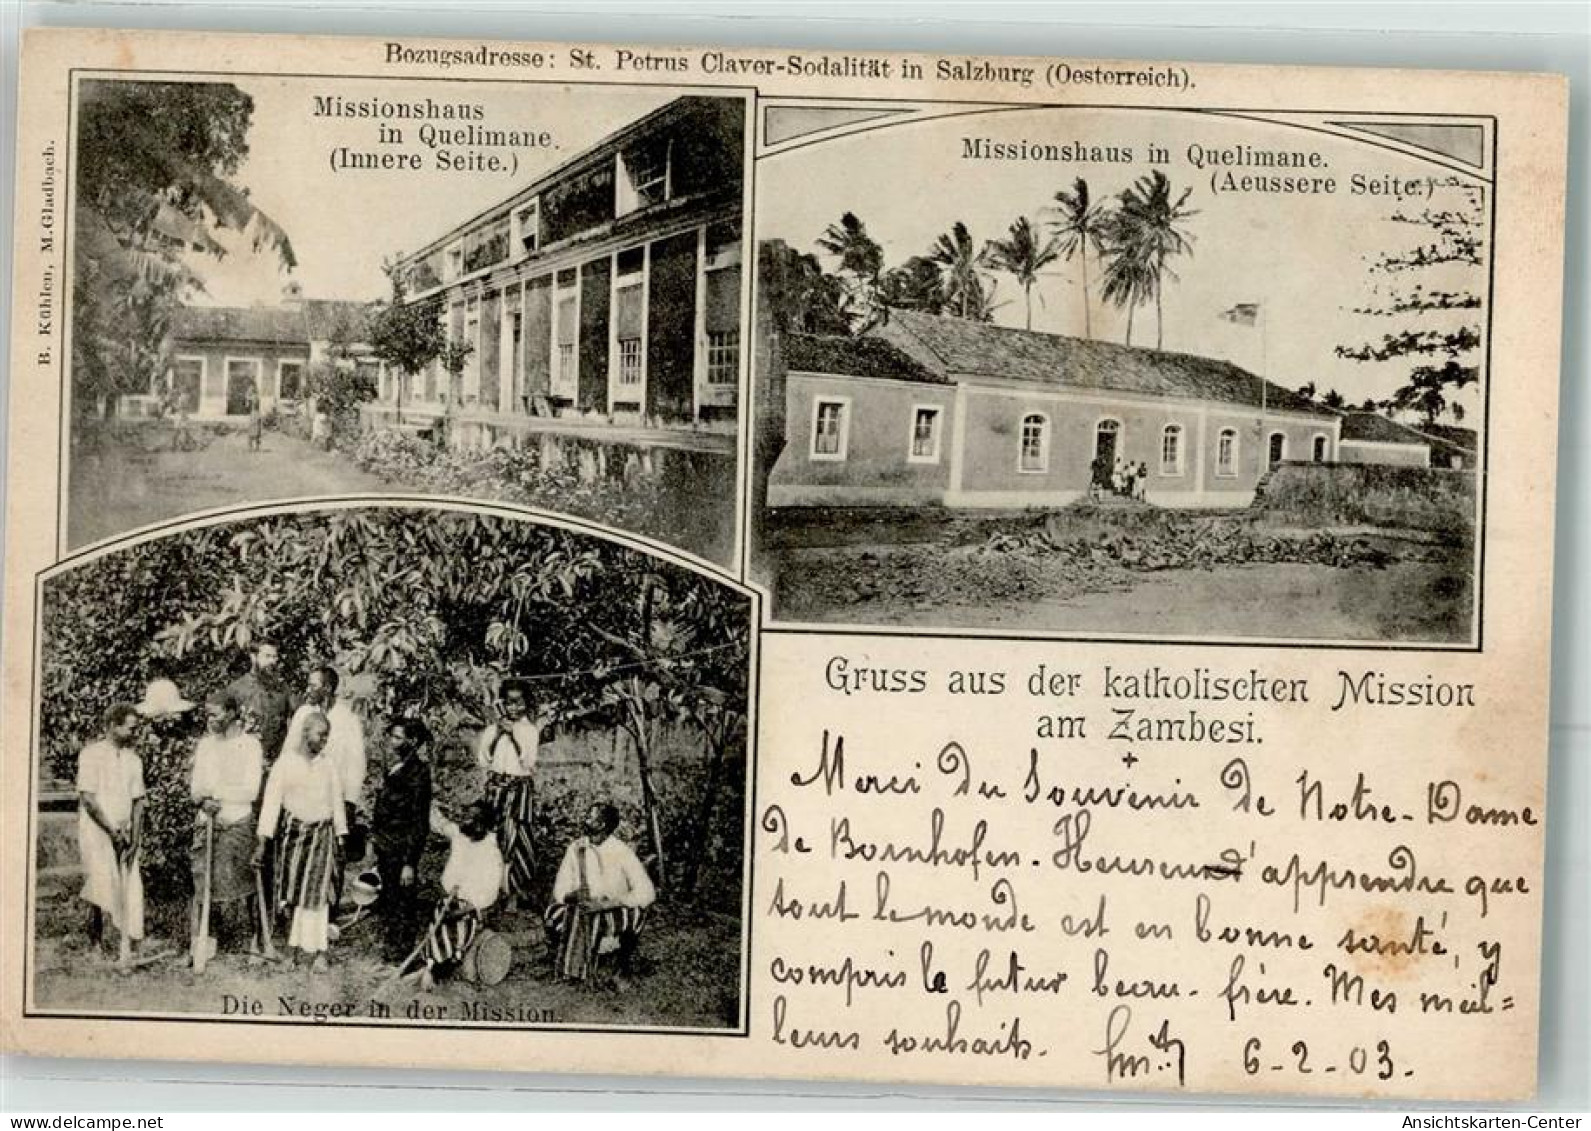 Bezugsadresse: St. Petrus Claver-Sodalität in Salzburg (Oesterreich).
B. Kühlen, M.Gladbach.
Missionshaus
in Quelimane.
(Innere Seite.)
Missionshaus in Quelimane.
(Aeussere Seite.)
Die Neger in der Mission.
Gruss aus der katholischen Mission
am Zambesi.
Merci du Souvenir de Notre-Dame
de Bornhofen. Heureux d'apprendre que
tout le monde est en bonne santé, y
compris le futur beau-frère. Mes meil=
leurs souhaits. 6-2-03.
Ansichtskarten-Center